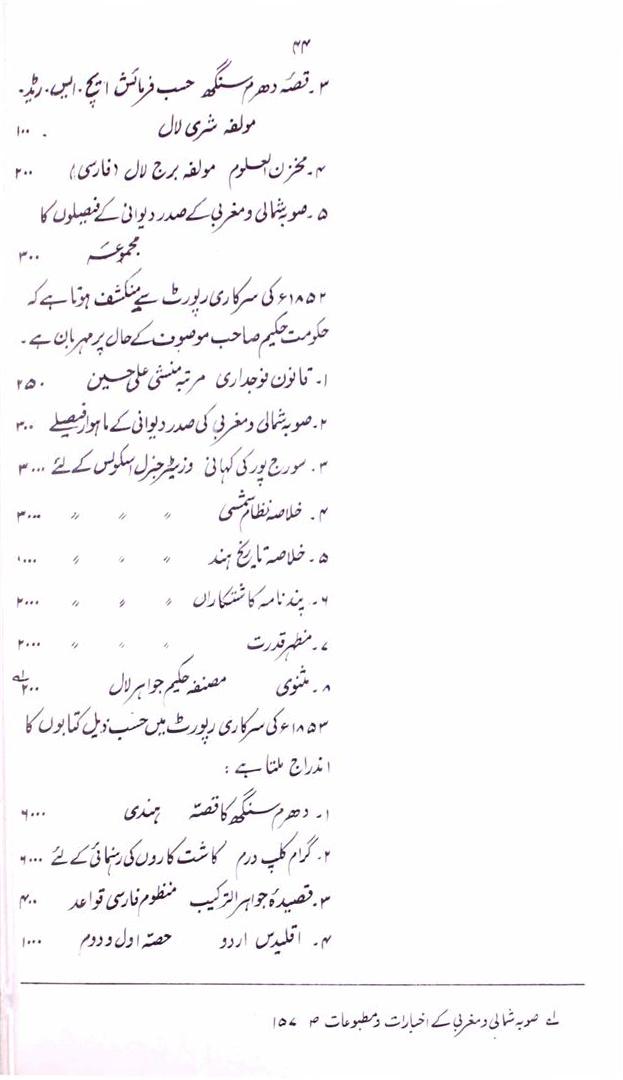 ۴۴
۳۔ قصّہ دھرم سنگھ حسب فرمائش ایچ۔ ایس۔ ریڈ۔
مولفہ شری لال ۱۰۰۰
۴۔ مخزن العلوم مولفہ برج لال (فارسی) ۲۰۰
۵۔ صوبہ شمالی و مغربی کے صدر دیوانی کے فیصلوں کا
مجموعہ ۳۰۰
۱۸۵۲ء کی سرکاری رپورٹ سے منکشف ہوتا ہے کہ
حکومت حکیم صاحب موصوف کے حال پر مہربان ہے۔
۱۔ قانون فوجداری مرتبہ منشی علی حسین ۲۵۰
۲۔ صوبہ شمالی و مغربی کی صدر دیوانی کے ماہوار فیصلے ۳۰۰
۳۔ سورج پور کی کہانی وزیٹر جنرل اسکولس کے لئے ۳۰۰۰
۴۔ خلاصہ نظام شمسی 〃 〃 〃 ۳۰۰۰
۵۔ خلاصہ تاریخ ہند 〃 〃 〃 ۱۰۰۰
۶۔ پندنامہ کاشتکاراں 〃 〃 〃 ۲۰۰۰
۷۔ مظہر قدرت 〃 〃 〃 ۲۰۰۰
۸۔ مثنوی مصنفہ حکیم جواہر لال ۲۰۰ ؎۱
۱۸۵۳ء کی سرکاری رپورٹ میں حسب ذیل کتابوں کا
اندراج ملتا ہے :
۱۔ دھرم سنگھ کا قصّہ ہندی ۶۰۰۰
۲۔ گرام کلپ درم کاشت کاروں کی رہنمائی کے لئے ۶۰۰۰
۳۔ قصیدۂ جواہر الترکیب منظوم فارسی قواعد ۴۰۰
۴۔ اقلیدس اردو حصّہ اول و دوم ۱۰۰۰
؎۱ صوبہ شمالی و مغربی کے اخبارات و مطبوعات ص ۱۵۷